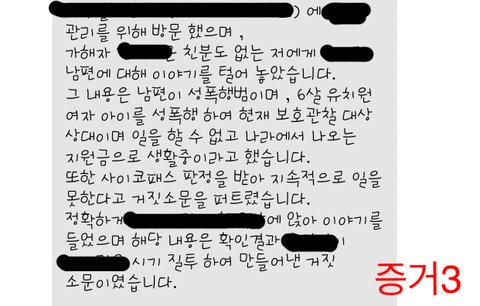 ) 에
관리를 위해 방문 했으며 ,
가해자 은 친분도 없는 저에게
남편에 대해 이야기를 털어 놓았습니다.
그 내용은 남편이 성폭행범이며 , 6살 유치원
여자 아이를 성폭행 하여 현재 보호관찰 대상
상대이며 일을 할 수 없고 나라에서 나오는
지원금으로 생활중이라고 했습니다.
또한 사이코패스 판정을 받아 지속적으로 일을
못한다고 거짓소문을 퍼트렸습니다.
정확하게 에 앉아 이야기를
들었으며 해당 내용은 확인결과
시기 질투 하여 만들어낸 거짓
소문이였습니다.
증거3